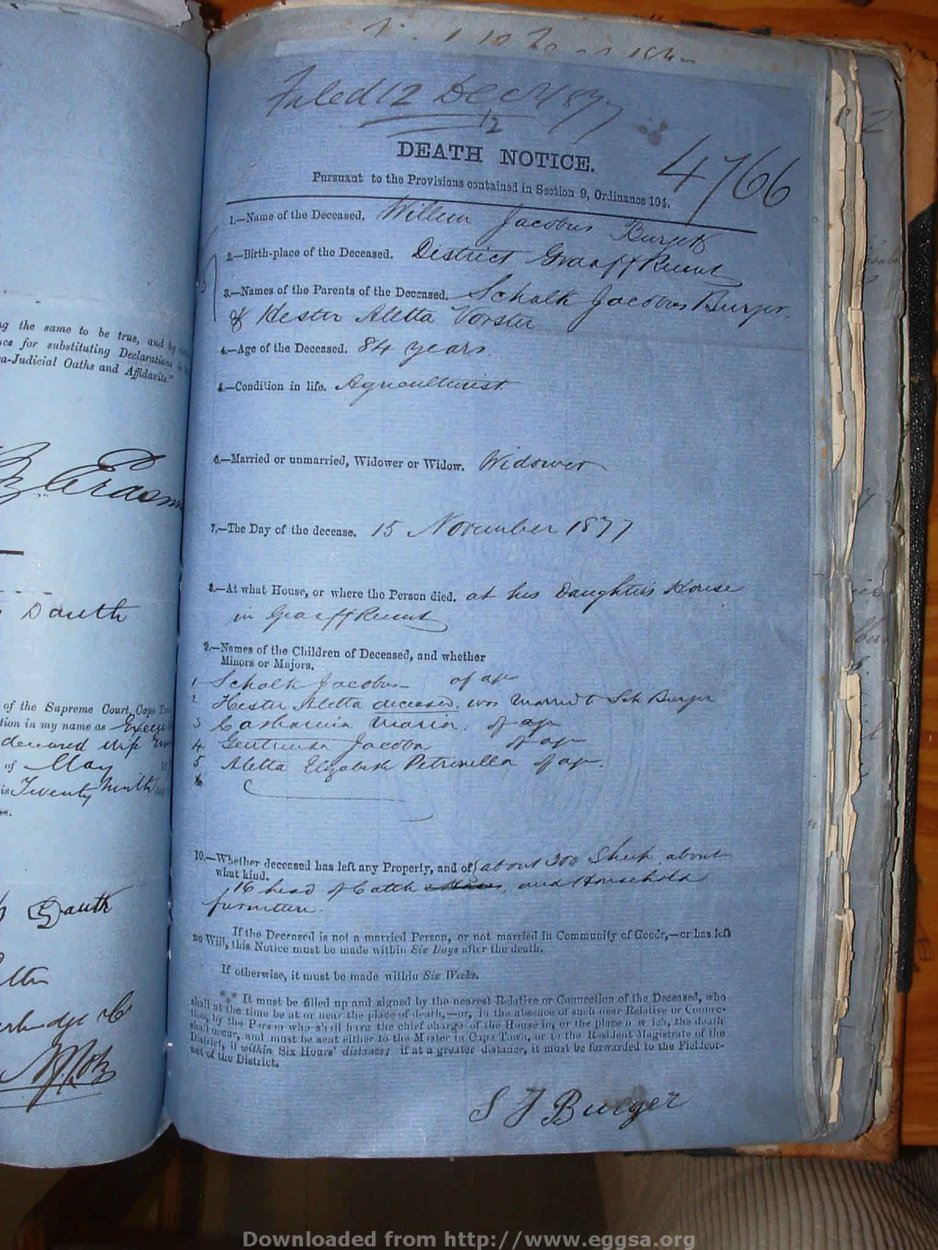 Filed 12 Dec 1877
12
4766
DEATH NOTICE.
Pursuant to the Provisions contained in Section 9, Ordinance 104.
1.—Name of the Deceased. Willem Jacobus Burger
2.—Birth-place of the Deceased. District Graaff Reinet
3.—Names of the Parents of the Deceased. Schalk Jacobus Burger
& Hester Aletta Vorster
4.—Age of the Deceased. 84 years.
5.—Condition in life. Agriculturist
6.—Married or unmarried, Widower or Widow. Widower
7.—The Day of the decease. 15 November 1877
8.—At what House, or where the Person died. at his Daughters House
in Graaff Reinet
9.—Names of the Children of Deceased, and whether
Minors or Majors.
1 Schalk Jacobus of age
2 Hester Aletta deceased, was married to Burger
3 Catharina Maria. of age
4 Gertruida Jacoba of age
5 Aletta Elizabeth Petronella of age.
6
10.—Whether deceased has left any Property, and of about 200 Sheep, about
what kind.
16 head of Cattle, and Household
furniture.
If the Deceased is not a married Person, or not married in Community of Goods,—or has left
no Will, this Notice must be made within Six Days after the death.
If otherwise, it must be made within Six Weeks.
It must be filled up and signed by the nearest Relative or Connection of the Deceased, who
shall at the time be at or near the place of death,—or, in the absence of such near Relative or Connec-
tion, by the Person who shall have the chief charge of the House in, or the place on which, the death
shall occur, and must be sent either to the Master in Cape Town, or to the Resident Magistrate of the
District, if within Six Hours' distance; if at a greater distance, it must be forwarded to the Fieldcor-
net of the District.
S J Burger
g the same to be true, and by
ce for substituting Declarations
a-Judicial Oaths and Affidavits."
of the Supreme Court, Cape
tion in my name as
of May
is Twenty Ninth
Downloaded from http://www.eggsa.org